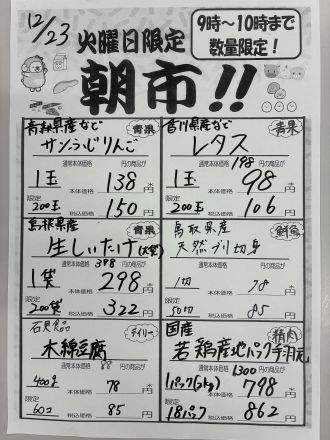 12/23
火曜日限定
9時～10時まで
数量限定！
朝市!!
青森県産など
青果
サンふじりんご
通常本体価格 円の商品が
1玉 本体価格 138円
限定
200玉 税込価格 150円
香川県産など
青果
レタス
通常本体価格 198円の商品が
1玉 本体価格 98円
限定
200玉 税込価格 106円
島根県産
青果
生しいたけ(大袋)
通常本体価格 398円の商品が
1袋 本体価格 298円
限定
200袋 税込価格 322円
鳥取県産
鮮魚
天然ブリ切身
通常本体価格 円の商品が
1切 本体価格 78円
限定
50切 税込価格 85円
石見食品
デイリー
木綿豆腐
通常本体価格 88円の商品が
400g 本体価格 78円
限定
60コ 税込価格 85円
国産
精肉
若鶏産地パック手羽元
通常本体価格 1300円の商品が
1パック(2kg) 本体価格 798円
限定
18パック 税込価格 862円